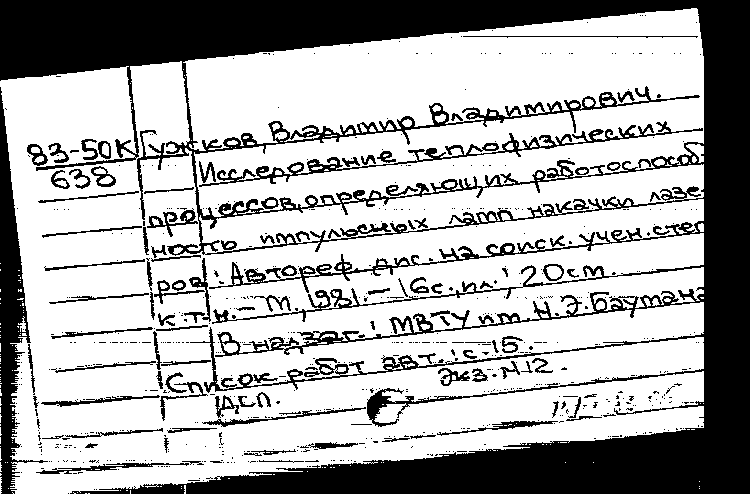 83-50К
638
Гужков, Владимир Владимирович.
Исследование теплофизических
процессов, определяющих работоспособ
ность импульсных ламп накачки лазе-
ров: Автореф. дис. на соиск. учен. степ
к.т.н. - М., 1981. - 16с., ил.; 20см.
В надзаг.: МВТУ им. Н. Э. Баумана
Список работ авт.: с. 15.
Экз. N12.
ДСП.